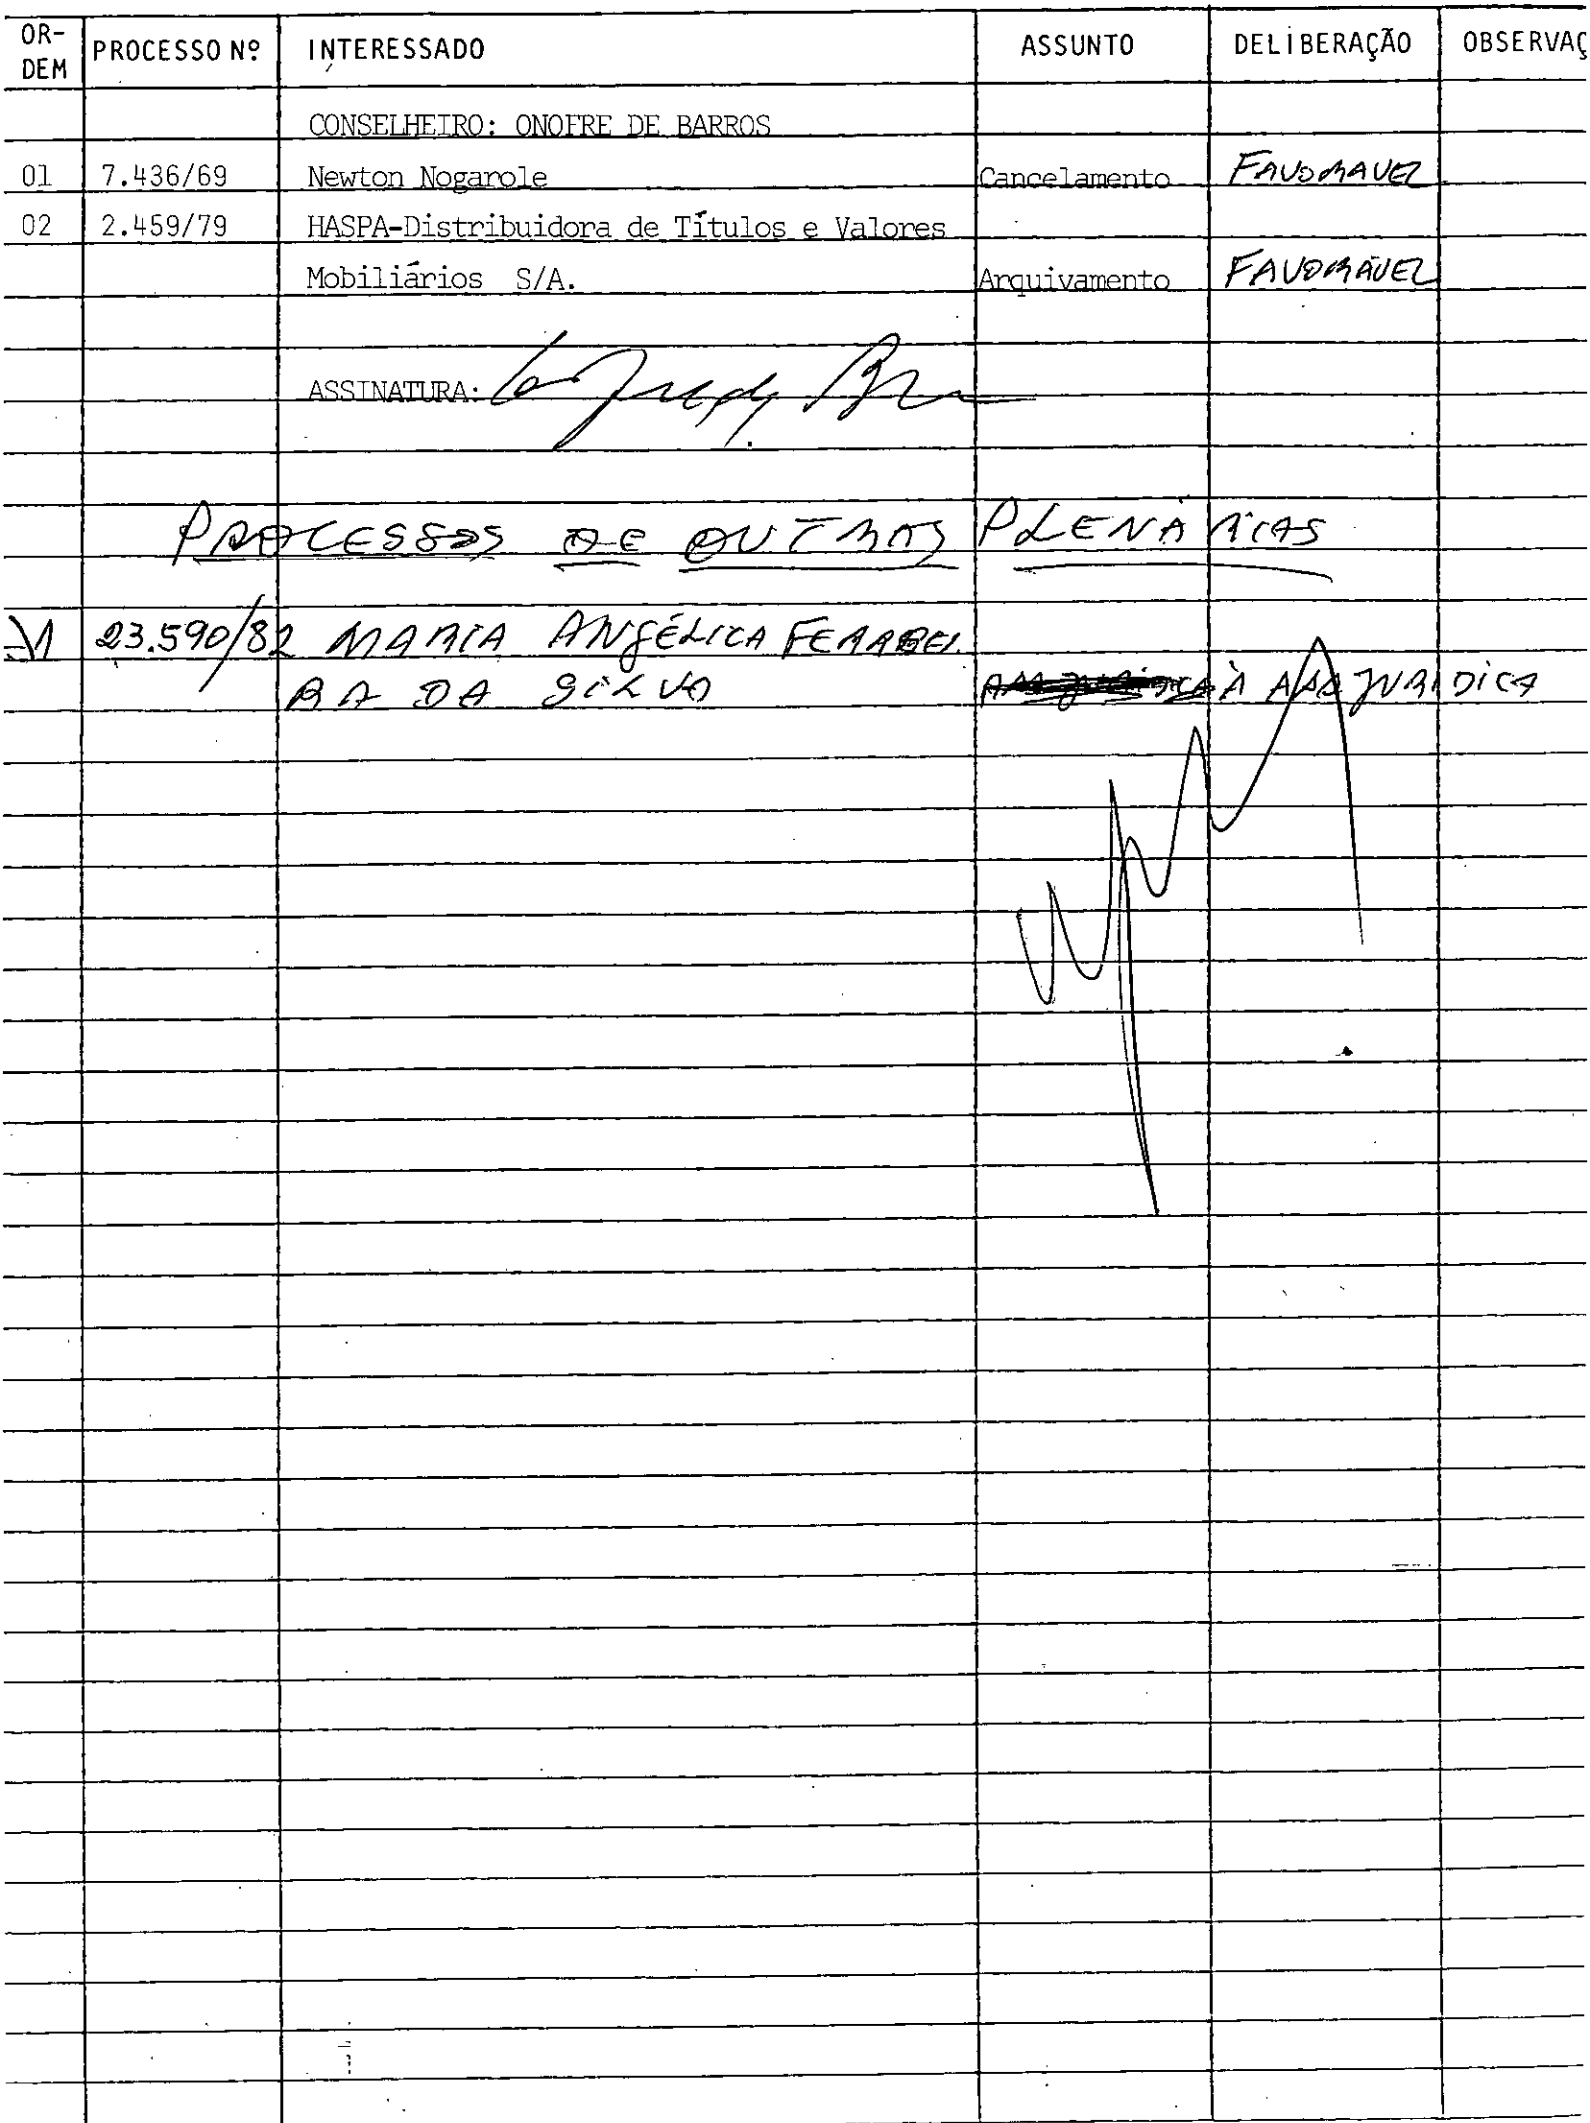 OR-DEM PROCESSO Nº INTERESSADO ASSUNTO DELIBERAÇÃO OBSERVAÇ
CONSELHEIRO: ONOFRE DE BARROS
01 7.436/69 Newton Nogarole Cancelamento FAVORAVEL
02 2.459/79 HASPA-Distribuidora de Títulos e Valores
Mobiliários S/A. Arquivamento FAVORÁVEL
ASSINATURA:
PROCESSOS DE OUTRAS PLENÁRIAS
23.590/82 MARIA ANGÉLICA FERREI
RA DA SILVA À ASS JURIDICA